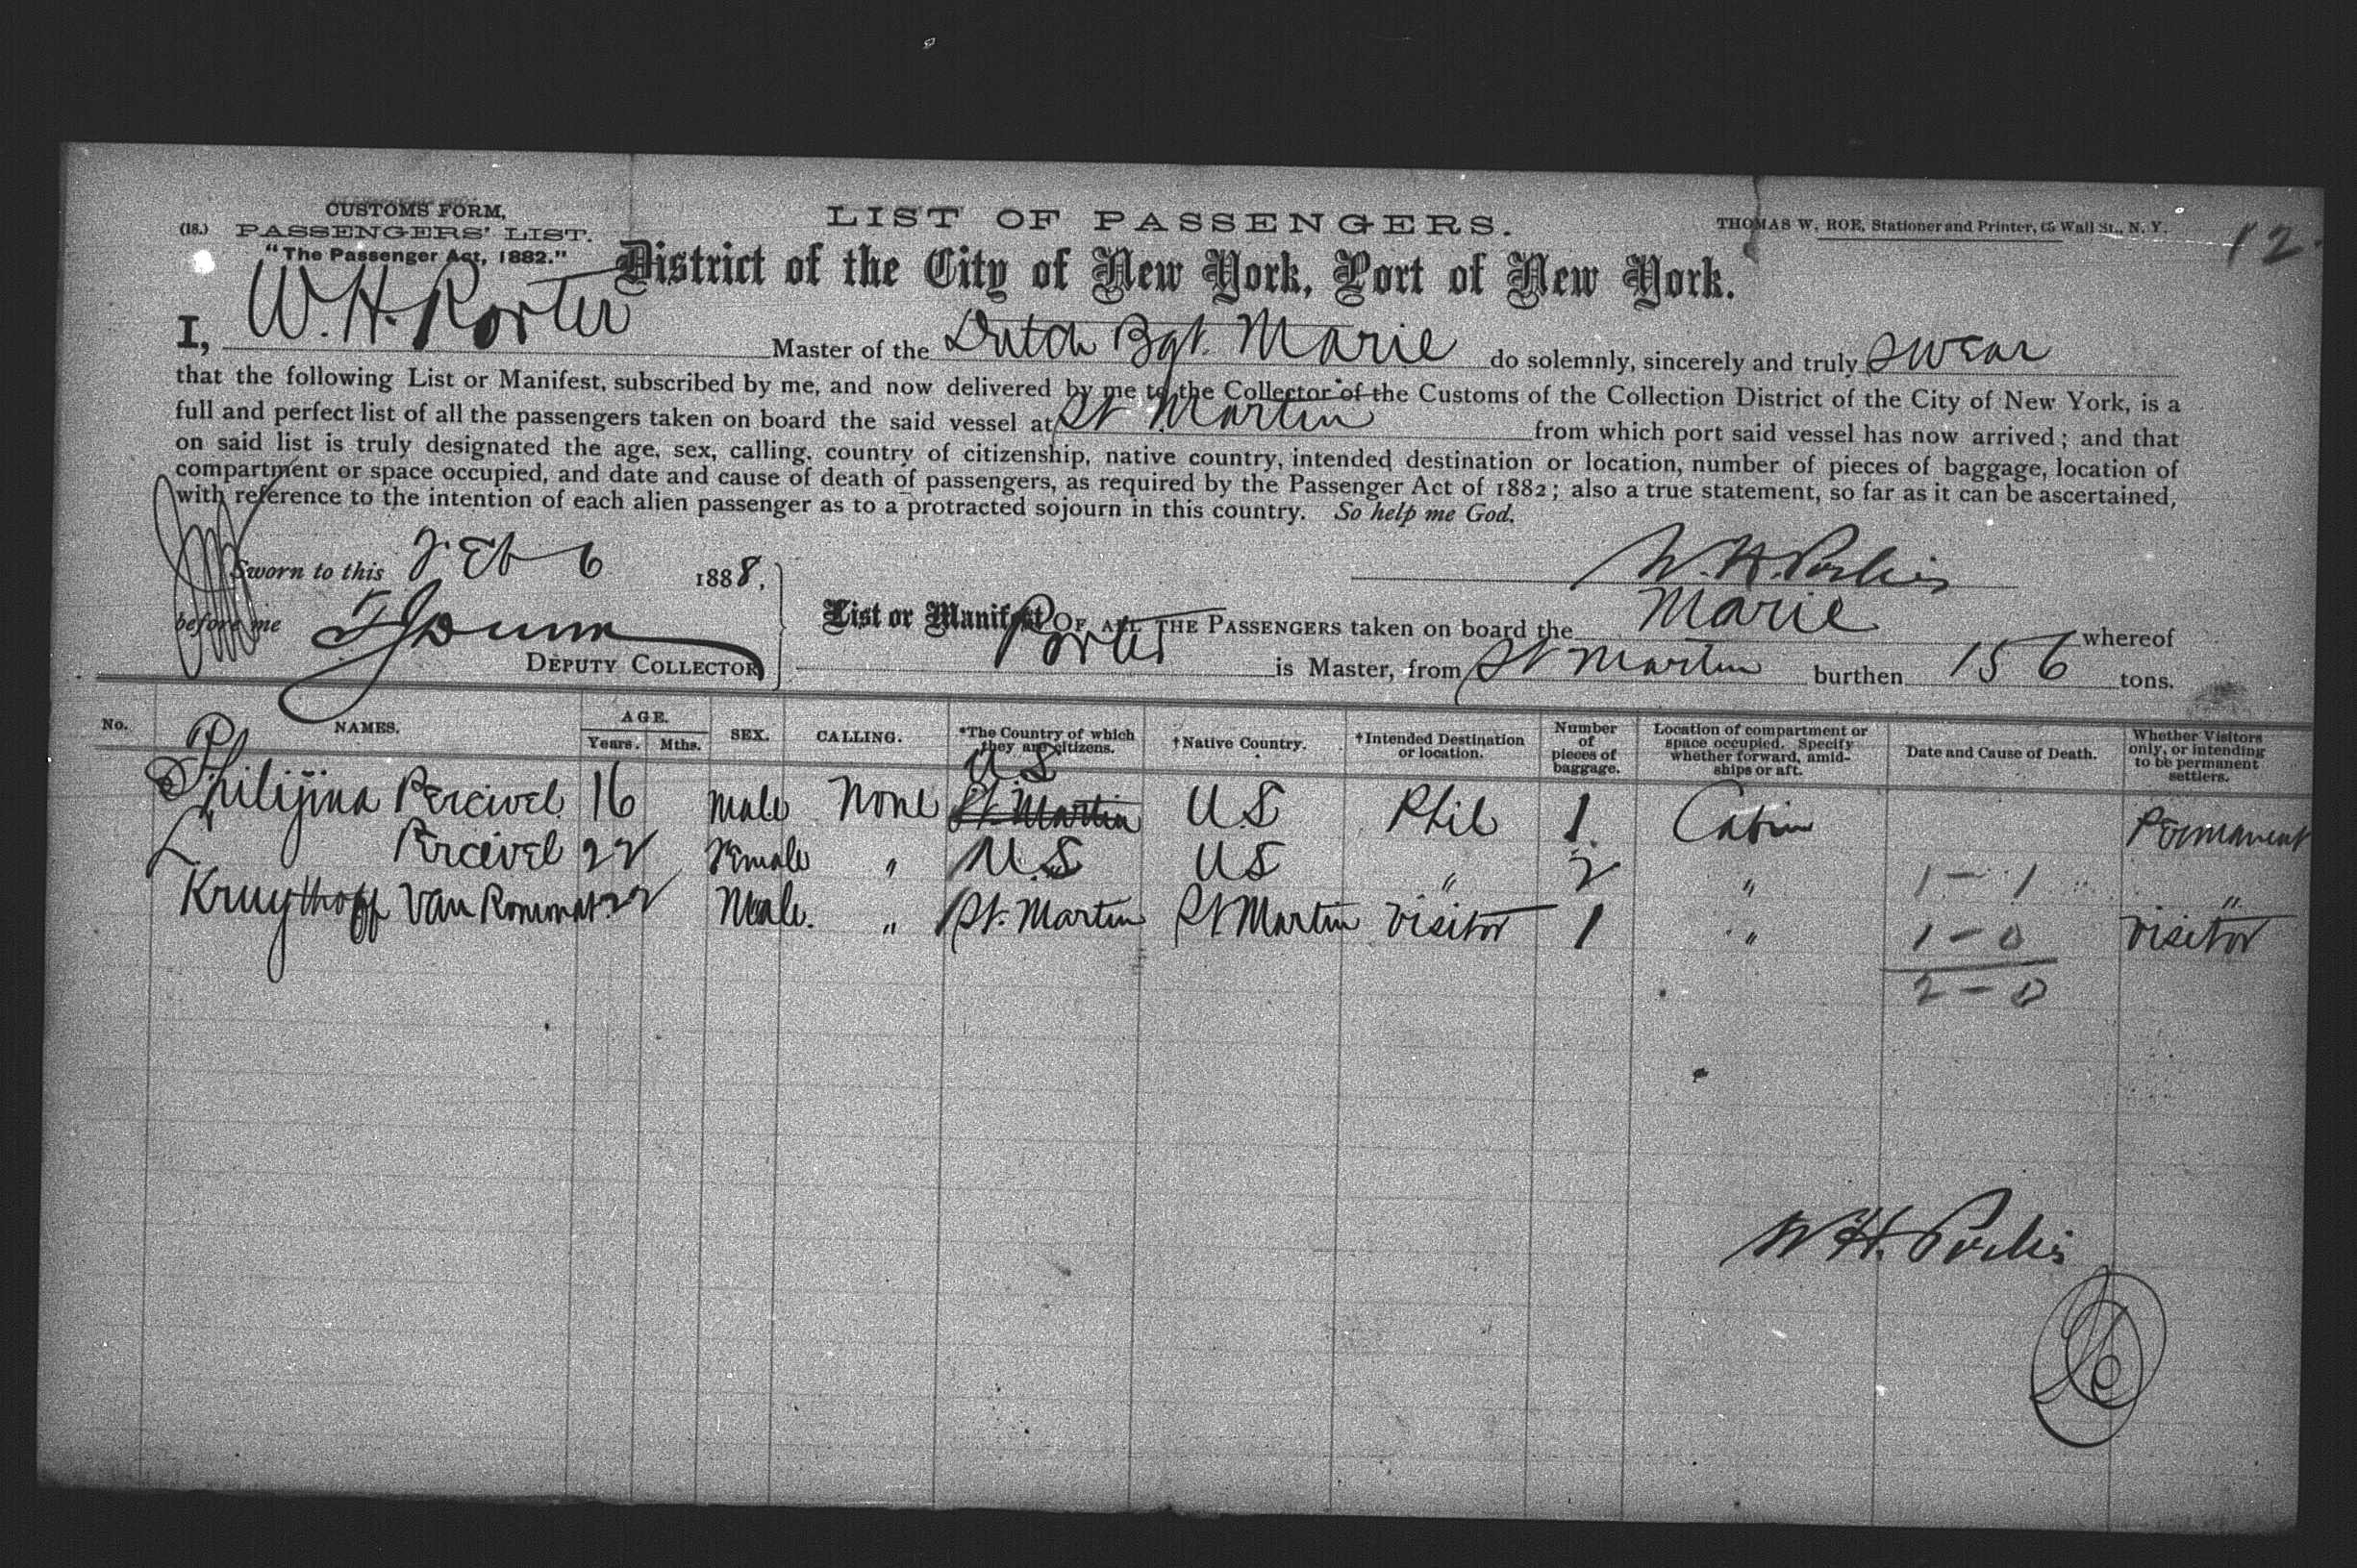 CUSTOMS FORM,
(18.) PASSENGERS' LIST.
"The Passenger Act, 1882."
LIST OF PASSENGERS.
THOMAS W. ROE, Stationer and Printer, Wall St., N. Y.
12
District of the City of New York, Port of New York.
I, W. H. Porter Master of the Dutch Bgt. Marie do solemnly, sincerely and truly swear
that the following List or Manifest, subscribed by me, and now delivered by me to the Collector of the Customs of the Collection District of the City of New York, is a
full and perfect list of all the passengers taken on board the said vessel at St Martin from which port said vessel has now arrived; and that
on said list is truly designated the age, sex, calling, country of citizenship, native country, intended destination or location, number of pieces of baggage, location of
compartment or space occupied, and date and cause of death of passengers, as required by the Passenger Act of 1882; also a true statement, so far as it can be ascertained,
with reference to the intention of each alien passenger as to a protracted sojourn in this country. So help me God.
Sworn to this Feb 6 1888.
W. H. Porter
before me
DEPUTY COLLECTOR
List or Manifest OF ALL THE PASSENGERS taken on board the Marie whereof
Porter is Master, from St Martin burthen 156 tons.
No. NAMES. AGE. Years. Mths. SEX. CALLING. *The Country of which they are citizens. †Native Country. †Intended Destination or location. Number of pieces of baggage. Location of compartment or space occupied. Specify whether forward, amidships or aft. Date and Cause of Death. Whether Visitors only, or intending to be permanent settlers.
U.S
Percivel 16 Male None St. Martin U.S Phil 1 Cabin Permanent
L Percivel 22 Female " U.S US " 2 " 1 - 1 "
Kruythoff Van Romondt 22 Male. " St. Martin St Martin Visitor 1 " 1 - 0 Visitor
2 - 0
W. H. Porter